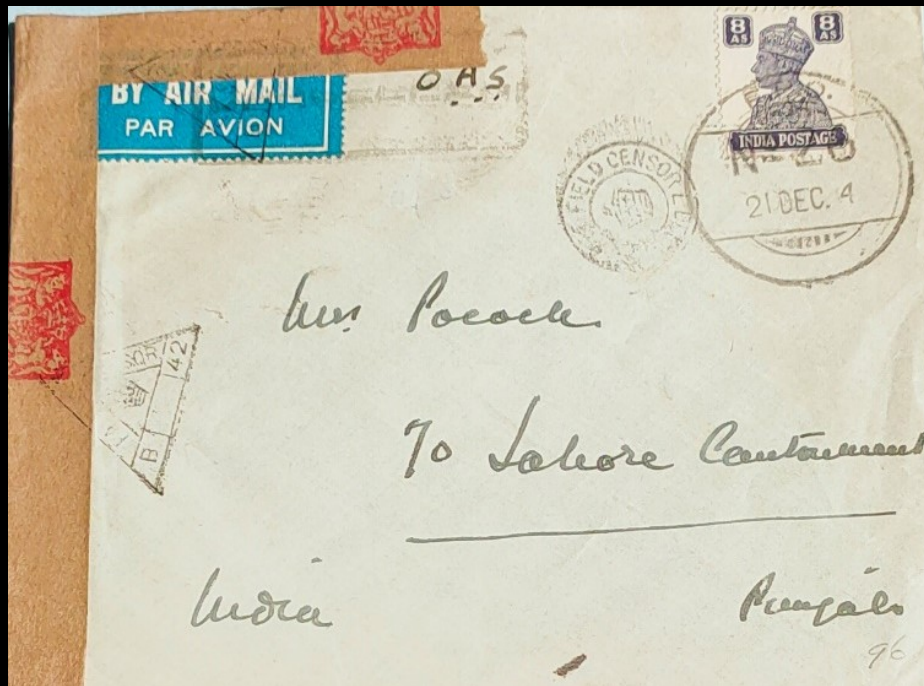 8 AS 8 AS
BY AIR MAIL
PAR AVION
O A S
INDIA POSTAGE
FIELD CENSOR
21 DEC. 4
Mrs Pocock
42
B
70 Lahore Cantonment
India
Punjab
96